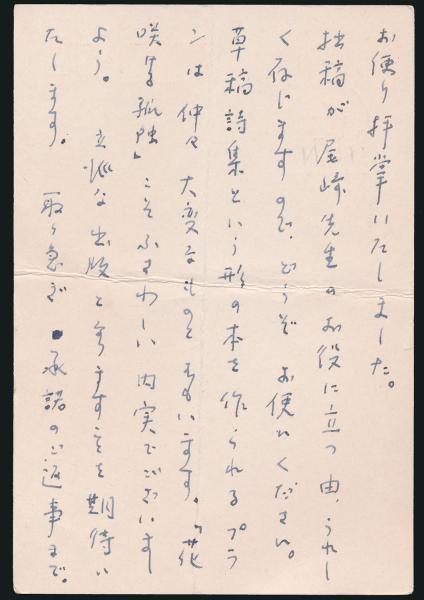 お便り拝掌いたしました。
拙稿が尾崎先生のお役に立つ由、うれし
く存じますので、どうぞ お使いください。
草稿詩集という形の本を作られるプラ
ンは仲々大変なものとおもいます。『花
咲ける孤独』こそふさわしい内実でございまし
よう。立派な出版となりますことを期待い
たします。 取り急ぎ 承諾のご返事まで。